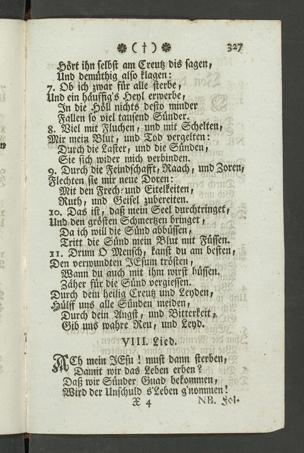 ✽ ( † ) ✽ 327
Hört ihn selbst am Creutz dis sagen,
Und demüthig also klagen:
7. Ob ich zwar für alle sterbe,
Und ein häuffig's Heyl erwerbe,
In die Höll nichts desto minder
Fallen so viel tausend Sünder.
8. Viel mit Fluchen, und mit Schelten,
Mir mein Blut, und Tod vergelten:
Durch die Laster, und die Sünden,
Sie sich wider mich verbinden.
9. Durch die Feindschafft, Raach, und Zoren,
Flechten sie mir neue Doren:
Mit den Frech- und Eitelkeiten,
Ruth, und Geisel zubereiten.
10. Das ist, daß mein Seel durchtringet,
Und den grösten Schmertzen bringet,
Da ich will die Sünd abbüssen,
Tritt die Sünd mein Blut mit Füssen.
11. Drum O Mensch, kanst du am besten,
Den verwundten JEsum trösten,
Wann du auch mit ihm wirst büssen.
Zäher für die Sünd vergiessen.
Durch dein heilig Creutz und Leyden,
Hülff uns alle Sünden meiden,
Durch dein Angst, und Bitterkeit,
Gib uns wahre Reu, und Leyd.
VIII. Lied.
ACh mein JEsu! must dann sterben,
Damit wir das Leben erben?
Daß wir Sünder Gnad bekommen,
Wird der Unschuld s'Leben g'nommen!
X 4 NB. Fol-